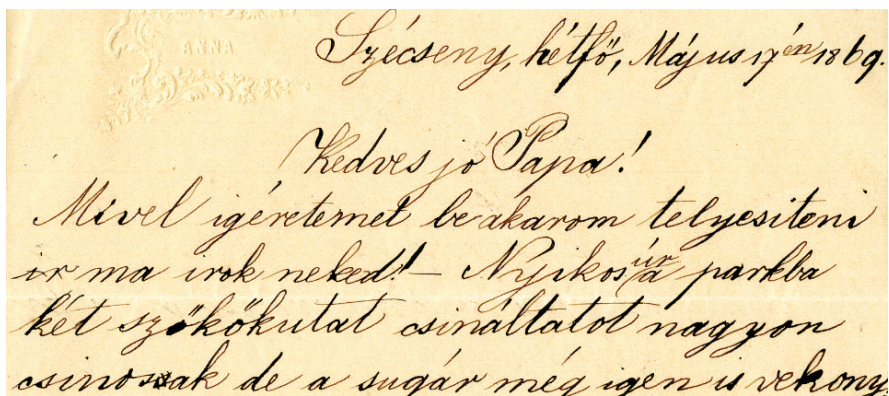 ANNA
Szécseny, hétfő, Május 17én 1869.
Kedves jó Papa!
Mivel igéretemet be akarom telyesiteni
ir ma irok neked! – Nyikos úr a parkba
két szökőkutat csináltatot nagyon
csinossak de a sugár még igen is vekony